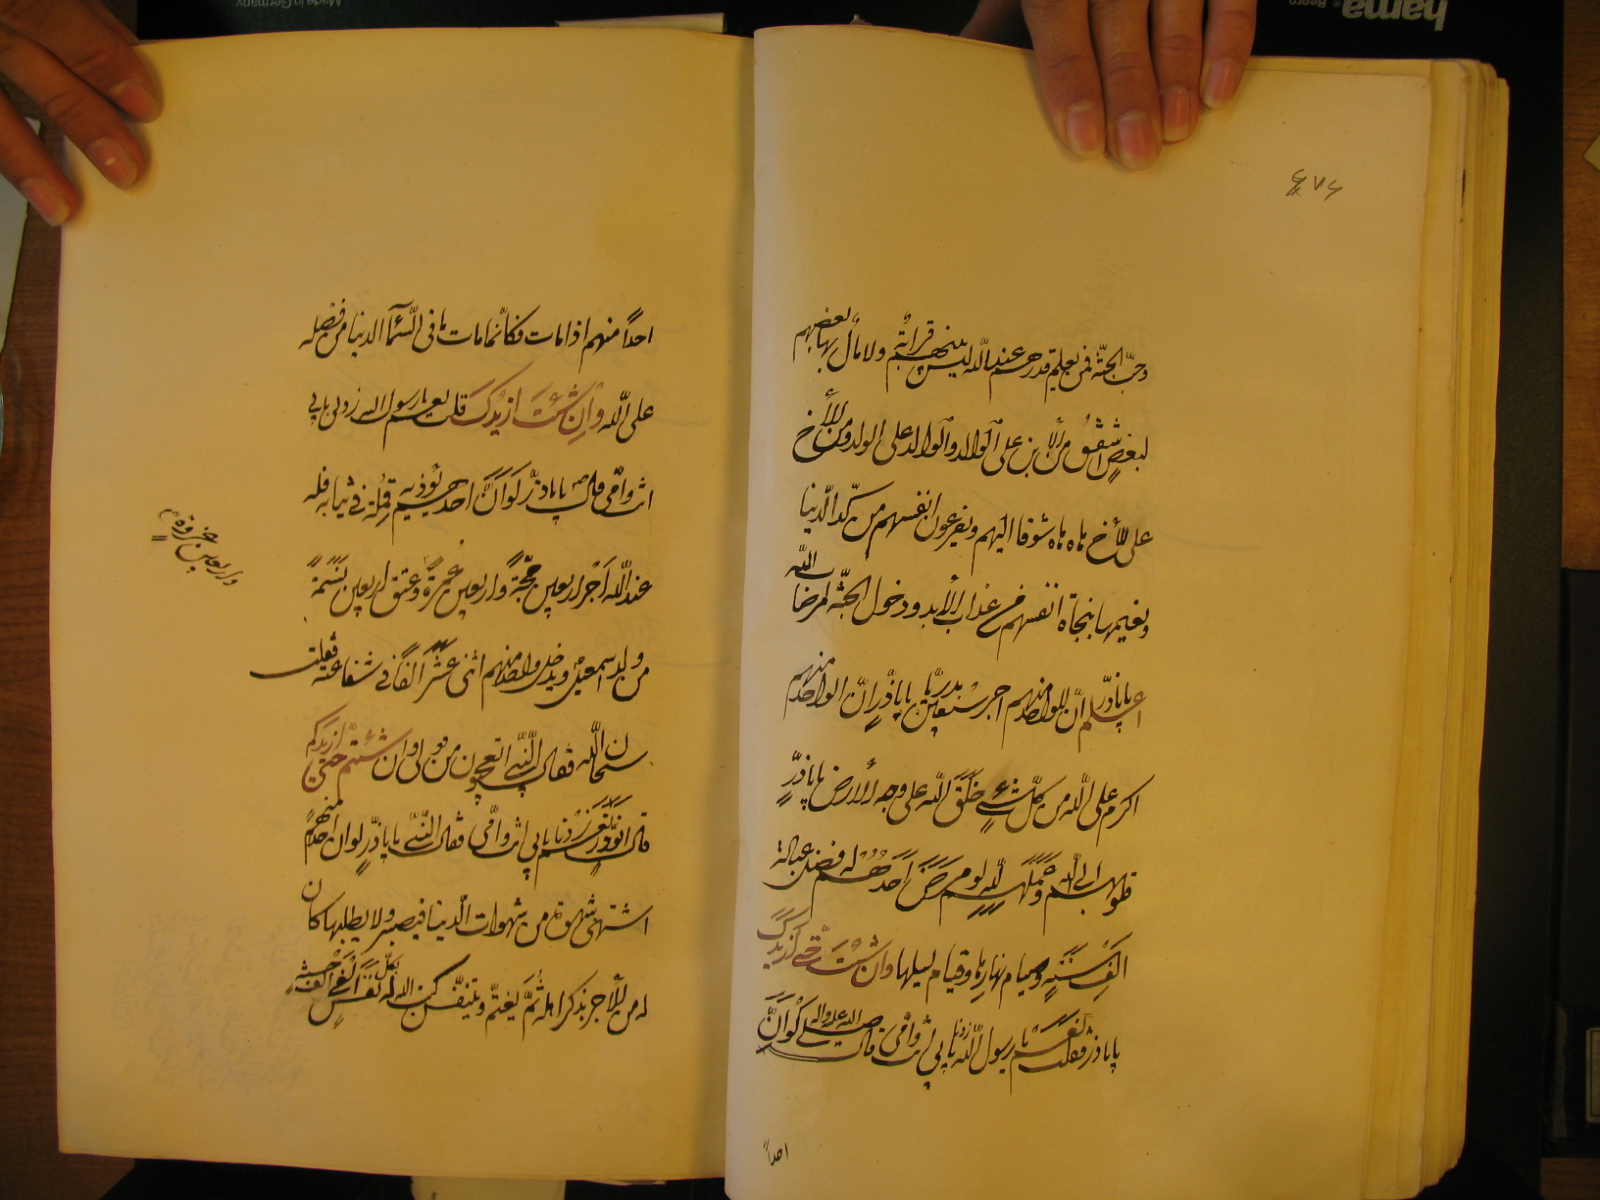 ۴۷۶
وحبّ الجنّة فمن يعلم قدرهم عند الله ليس بينهم قرابة ولا مال بها بعضهم
لبعض اشفق من الابن على الوالد والوالد على الولد ومن الأخ
على الأخ هاه هاه شوقا اليهم ويفرغون انفسهم من كدّ الدنيا
ونعيمها بنجاة انفسهم من عذاب الأبد ودخول الجنّة لمرضاة الله
اعلم يا باذرّ انّ للواحد منهم اجر سبعين بدريّا يا باذرّ انّ الواحد منهم
اكرم على الله من كلّ شىء خلق الله على وجه الأرض يا باذرّ
قلوبهم الى الله وعملهم لله لو مرض احدهم له فضل عبادة
الف سنة وصيام نهارها وقيام ليلها وان شئت حتى ازيدك
يا باذر فقلت نعم يا رسول الله زدنا بابى انت وامّى قال صلى الله عليه واله لو انّ
احداً
احداً منهم اذا مات فكانّما مات ما فى السّماء الدنيا من فضله
على الله وان شئت ازيدك قلت نعم يا رسول الله زدنى بابى
انت وامّى قال ص يا باذرّ لو انّ احدهم يؤذيه قملة فى ثيابه فله
عند الله اجر اربعين حجّة واربعين عمرة وعتق اربعين نسمة
واربعين غزوة
من ولد اسمعيل ويدخل واحد منهم اثنى عشر الفا فى شفاعته فقلت
سبحان الله فقال النّبى اتعجبون من قولى وان شئتم حتى ازيدكم
قال ابوذرّ نعم زدنا بابى انت وامّى فقال النّبى يا باذرّ لو ان احدا منهم
اشتهى شهوة من شهوات الدنيا فيصبر ولا يطلبها كان
له من الأجر بذكر اهله ثمّ يغتمّ ويتنفّس كتب الله له بكلّ نفس الفى الف حسنة